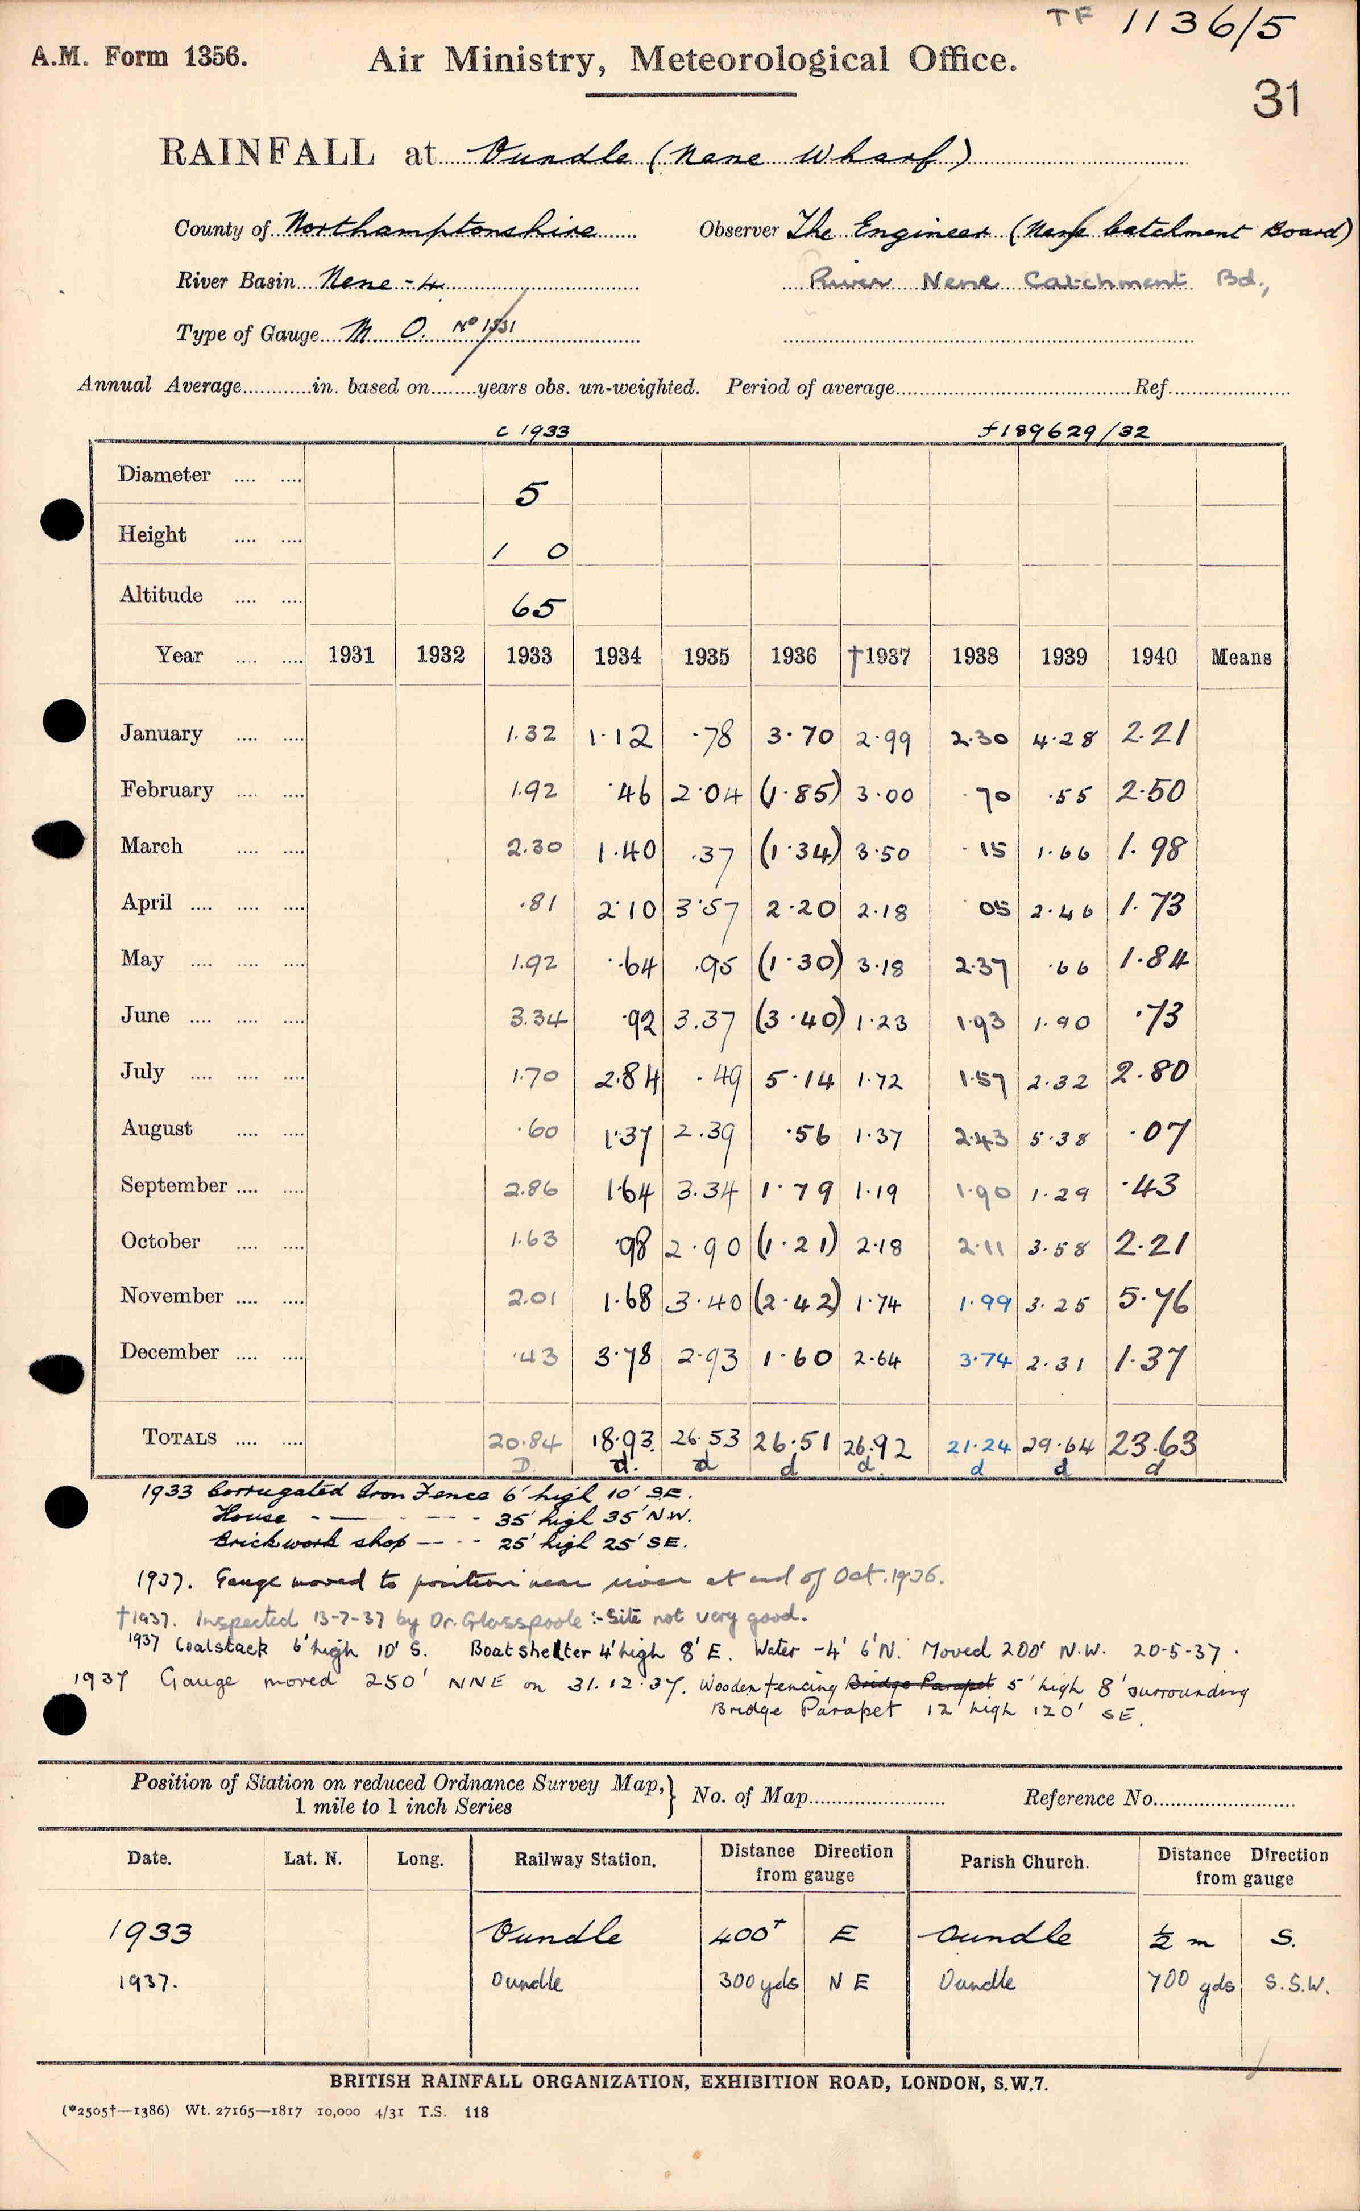 TF 1136/5
A.M. Form 1356. Air Ministry, Meteorological Office.
31
RAINFALL at Oundle (Nene Wharf)
County of Northamptonshire Observer The Engineer (Nene Catchment Board)
River Basin Nene - 4 River Nene Catchment Bd.,
Type of Gauge M O. No 1931
Annual Average in. based on years obs. un-weighted. Period of average Ref
c 1933 f189629/32
Diameter 5
Height 1 0
Altitude 65
Year 1931 1932 1933 1934 1935 1936 †1937 1938 1939 1940 Means
January 1.32 1.12 .78 3.70 2.99 2.30 4.28 2.21
February 1.92 .46 2.04 (1.85) 3.00 .70 .55 2.50
March 2.30 1.40 .37 (1.34) 3.50 .15 1.66 1.98
April .81 2.10 3.57 2.20 2.18 .05 2.46 1.73
May 1.92 .64 .95 (1.30) 3.18 2.37 .66 1.84
June 3.34 .92 3.37 (3.40) 1.23 1.93 1.90 .73
July 1.70 2.84 .49 5.14 1.72 1.57 2.32 2.80
August .60 1.37 2.39 .56 1.37 2.43 5.38 .07
September 2.86 1.64 3.34 1.79 1.19 1.90 1.29 .43
October 1.63 .98 2.90 (1.21) 2.18 2.11 3.58 2.21
November 2.01 1.68 3.40 (2.42) 1.74 1.99 3.25 5.76
December .43 3.78 2.93 1.60 2.64 3.74 2.31 1.37
TOTALS 20.84 18.93 26.53 26.51 26.92 21.24 29.64 23.63
D. d. d d d. d d d
1933 Corrugated Iron Fence 6' high 10' SE.
House - - - - - 35' high 35' N.W.
Brickwork shop - - - 25' high 25' SE.
1937. Gauge moved to position near river at end of Oct. 1936.
†1937. Inspected 13-7-37 by Dr. Glasspoole :- Site not very good.
1937 Coalstack 6' high 10' S. Boat shelter 4' high 8' E. Water -4' 6' N. Moved 200' N.W. 20-5-37.
1937 Gauge moved 250' NNE on 31.12.37. Wooden fencing Bridge Parapet 5' high 8' surrounding
Bridge Parapet 12' high 120' SE.
Position of Station on reduced Ordnance Survey Map,} No. of Map Reference No.
1 mile to 1 inch Series
Date. Lat. N. Long. Railway Station. Distance Direction from gauge Parish Church. Distance Direction from gauge
1933 Oundle 400+ E Oundle ½ m S.
1937. Oundle 300 yds N E Oundle 700 yds S.S.W.
BRITISH RAINFALL ORGANIZATION, EXHIBITION ROAD, LONDON, S.W.7.
(*2505†—1386) Wt. 27165—1817 10,000 4/31 T.S. 118